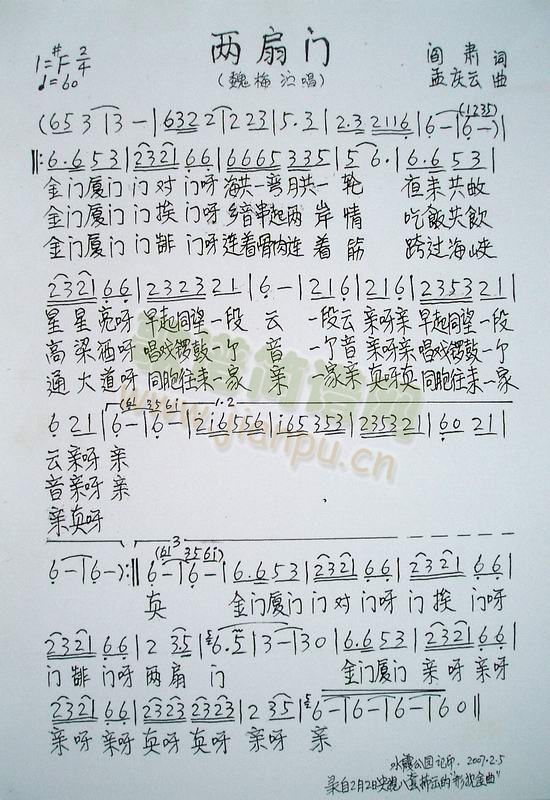 两扇门
(魏梅泣唱)
阎肃 词
孟庆云 曲
1=#F 2/4
♩=60
(65 3 | 3 - | 6322 | 223 | 5·3 | 2·3 2116 | 6 - | 6 - ) |
(1235)
‖: 6·6 53 | 2321 66 | 6665 335 | 5 6· | 6·6 53 |
金门厦门 门对 门呀 海共一弯月共一 轮 夜来共畋
金门厦门 门挨 门呀 乡音串起两 岸 情 吃飯共飲
金门厦门 门邮 门呀 连着骨肉连 着 筋 跨过海峡
2321 66 | 2323 21 | 6 - | 216 | 216 | 2353 21 |
星星亮呀 早起同望一段 云 一段云 亲呀亲 早起同望一段
高梁酒呀 唱戏锣鼓一个 音 一个音 亲呀亲 唱戏锣鼓一个
通大道呀 同胞往来一家 亲 一家亲 真呀真 同胞往来一家
(61 3561) 1.2
6 21 | 6 - | 6 - | 2i6556 | i65353 | 235321 | 60 21 |
云亲呀 亲
音亲呀 亲
亲真呀
3
(61 3561)
6 - | 6 - ) :‖ 6 - | 6 - | 6·6 53 | 2321 66 | 2321 66 |
真 金门厦门 门对 门呀 门挨 门呀
2321 66 | 2 35 | 6·5 | 3 - | 30 | 6·6 53 | 2321 66 |
门邮 门呀 两扇 门 金门厦门 亲呀 亲呀
2321 66 | 2323 2323 | 2 35 | 6 - | 6 - | 6 - | 60 ‖
亲呀 亲呀 真呀 真呀 亲呀 亲
2007.2.5
录自2月2日
www.jianpu.cn